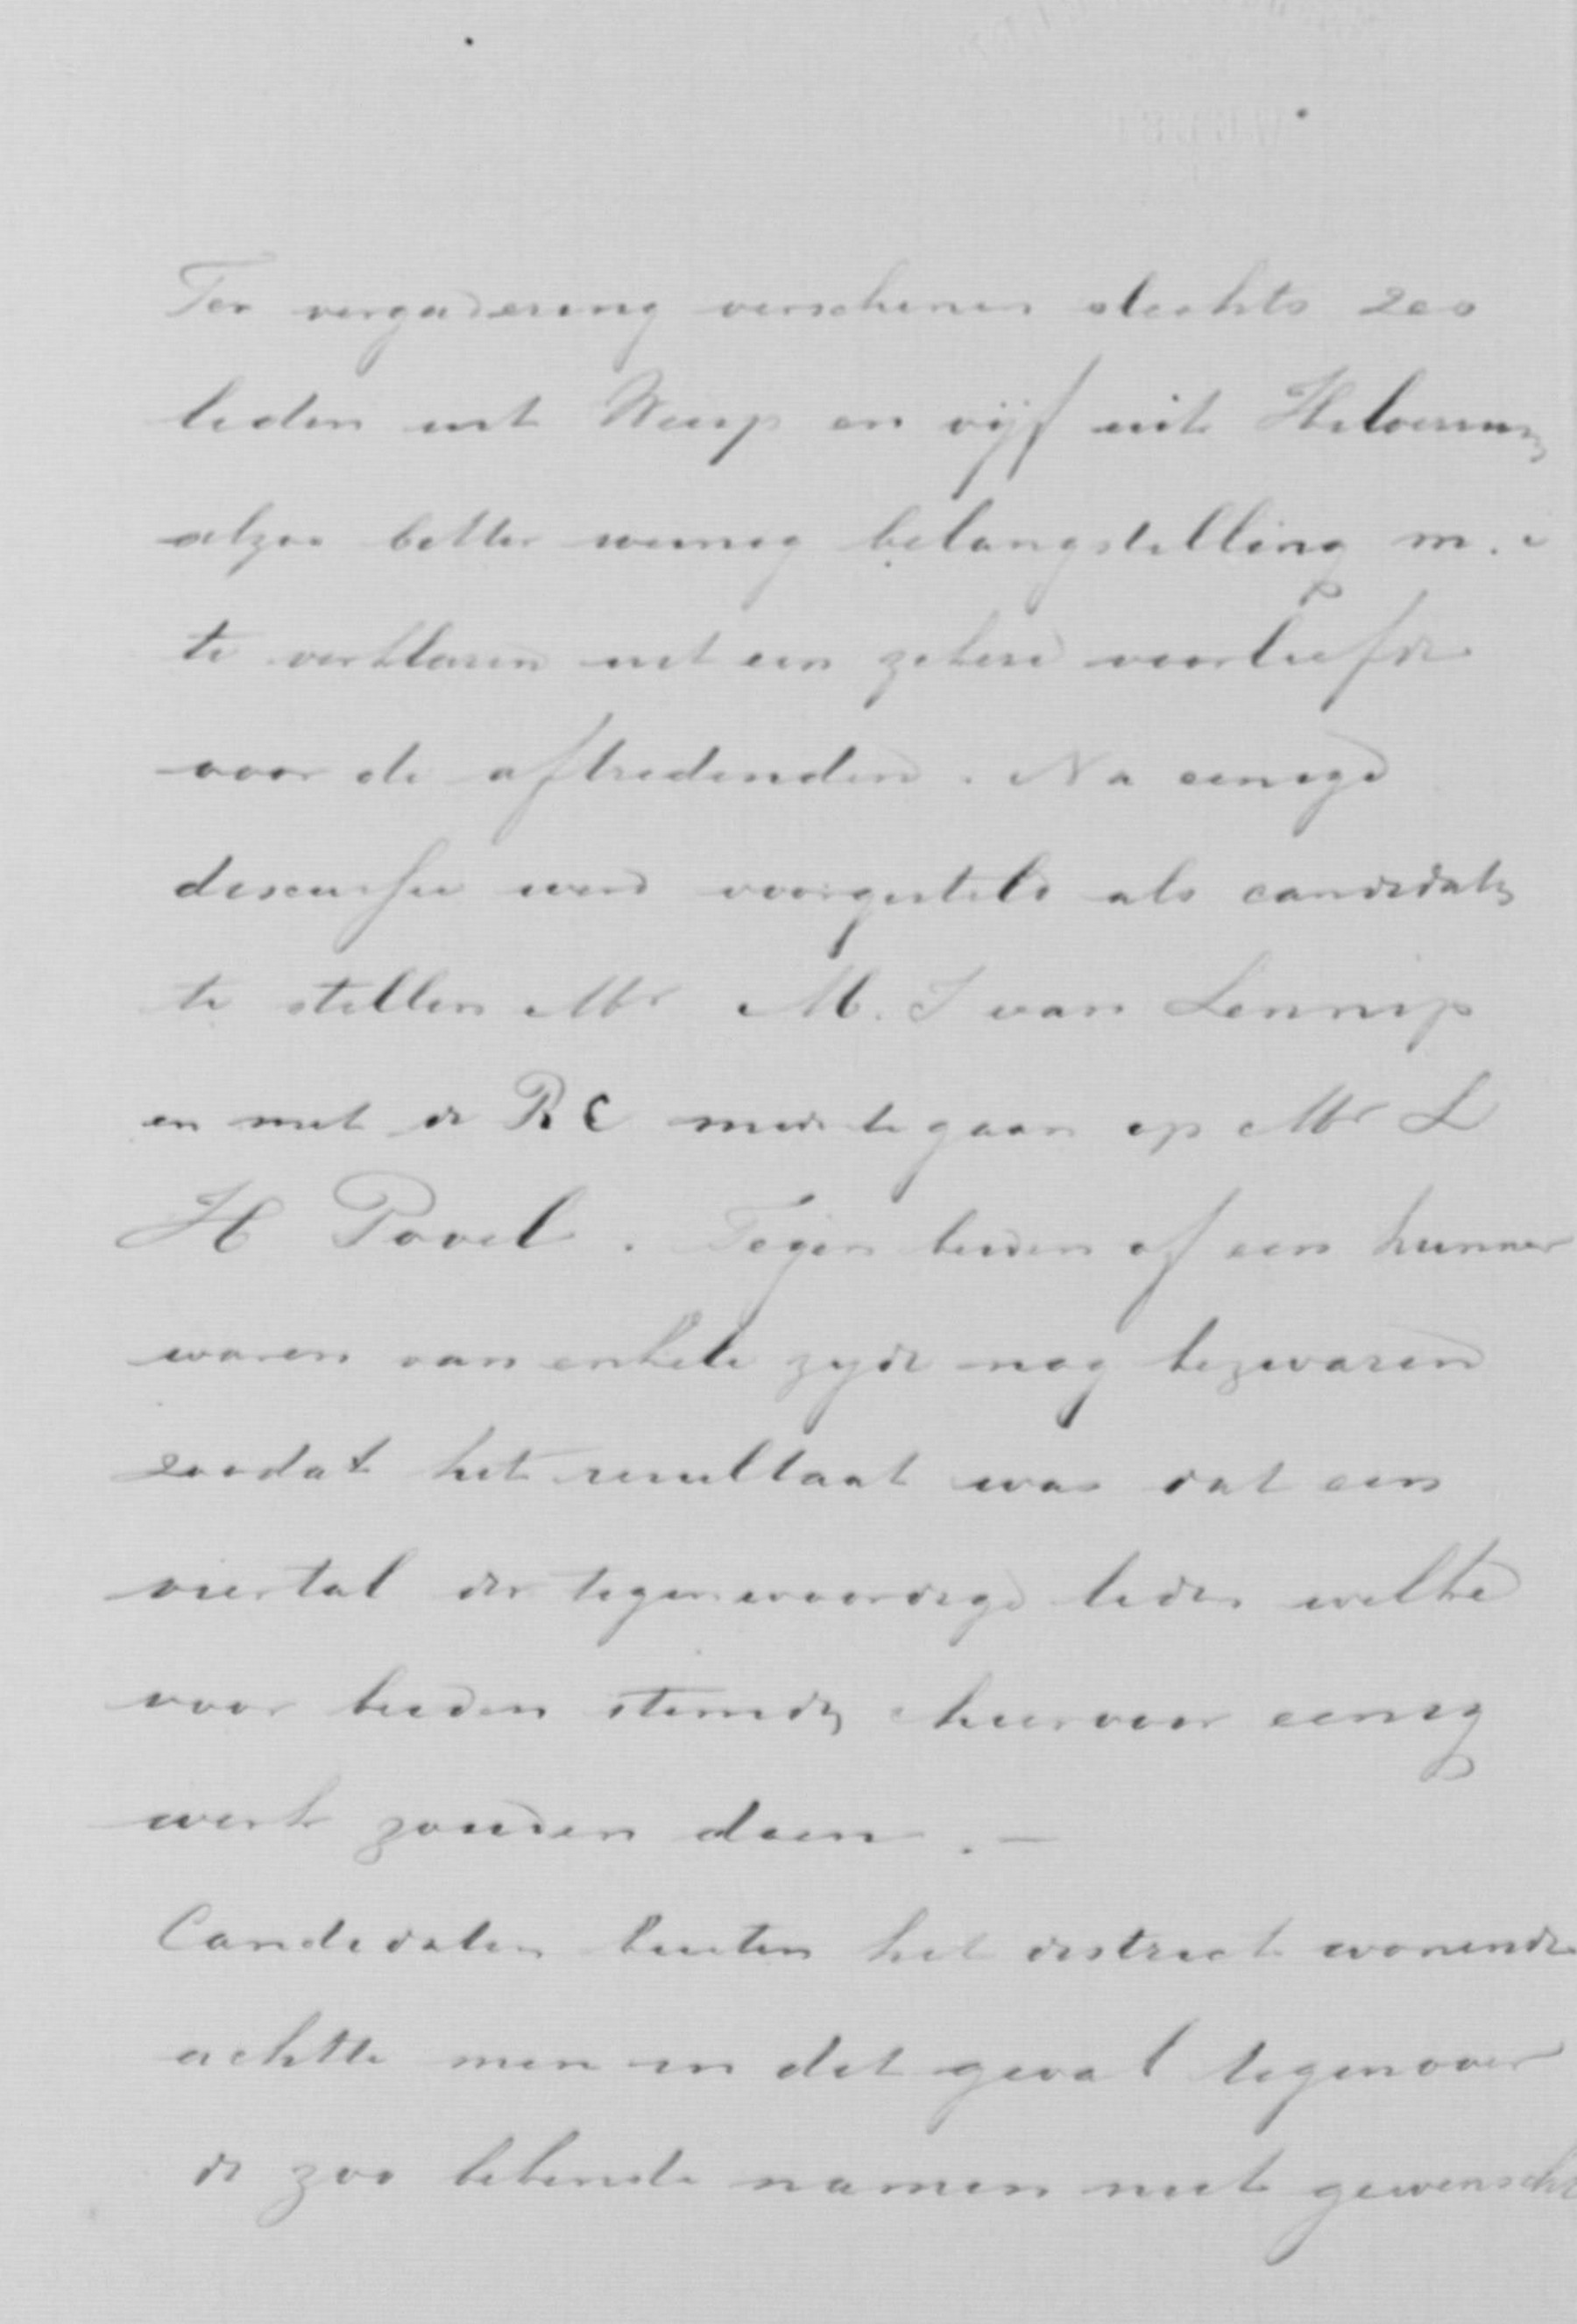 Ter vergadering verschenen slechts zes
leden uit Weesp en vijf uit Hilversum
alzoo bitter weinig belangstelling m. i
te verklaren uit een zekere voorliefde
voor de aftredenden. Na eenige
discussie werd voorgesteld als candidaten
te stellen Mr M. J van Lennep
en met de RC mede te gaan op Mr L
H Povel. Tegen beiden of een hunner
waren van enkele zyde nog bezwaren
zoodat het resultaat was dat een
viertal der tegenwoordige leden welke
voor beiden stemden hiervoor eenig
werk zouden doen. —
Candidaten buiten het district wonende
achtte men in dit geval tegenover
de zoo bekende namen niet gewenscht